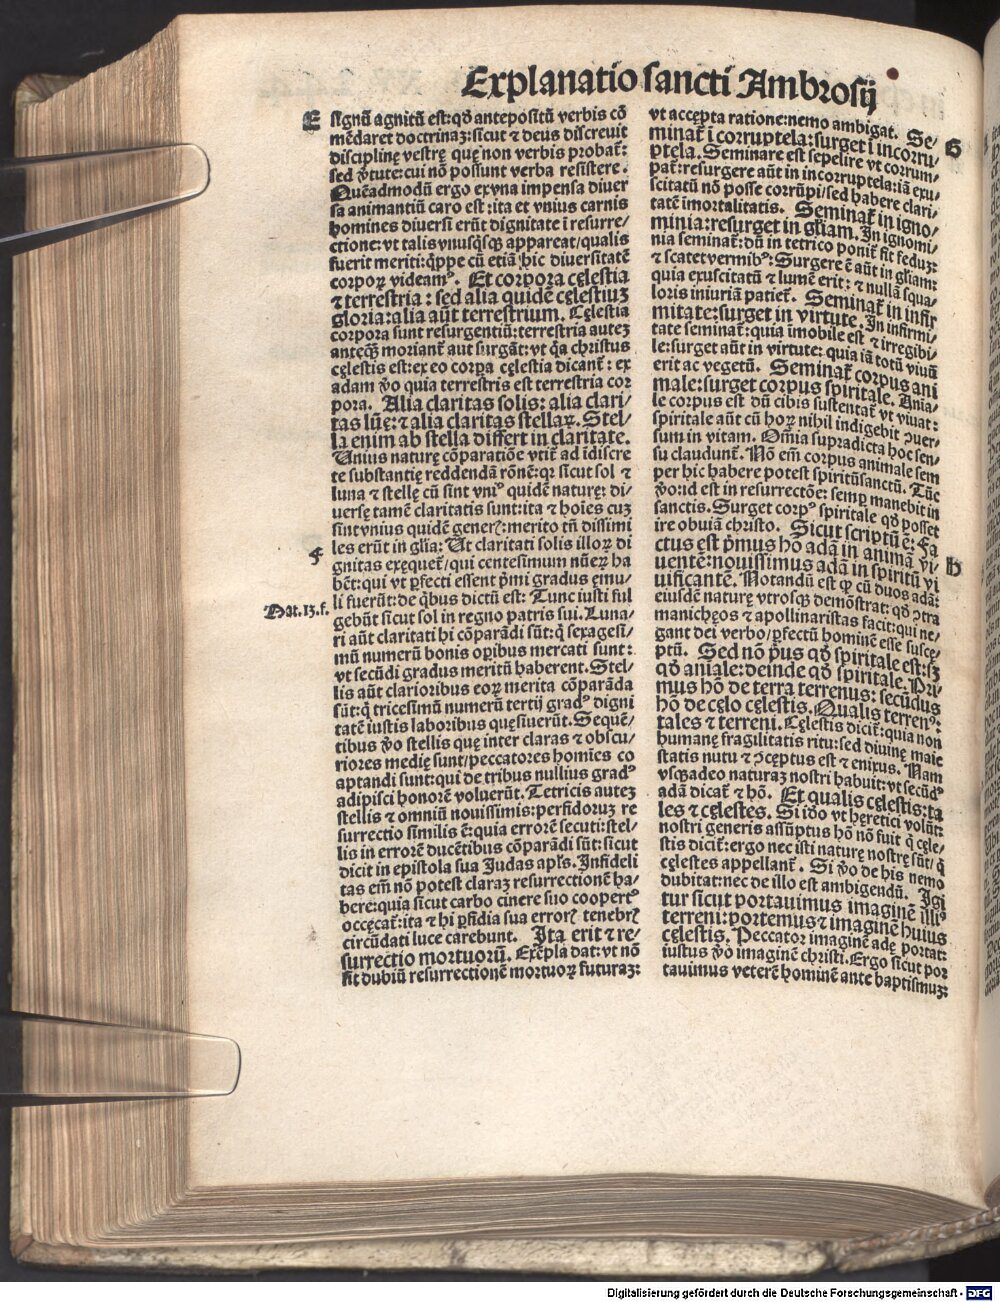 Explanatio sancti Ambrosij
E
signũ agnitũ est: qđ antepositũ verbis cõ
mẽdaret doctrinaꝫ: sicut ⁊ deus discreuit
disciplinę vestrę quę non verbis probat᷑:
sed ꝟtute: cui nõ possunt verba resistere.
Quẽadmodũ ergo ex vna impensa diuer
sa animantiũ caro est: ita et vnius carnis
homines diuersi erũt dignitate ĩ resurre/
ctione: vt talis vnusq̃sqꝫ appareat/qualis
fuerit meriti: q̃ppe cũ etiã hic diuersitatẽ
corpoꝝ videamꝰ. Et corpora cęlestia
⁊ terrestria: sed alia quidẽ cęlestiuꝫ
gloria: alia aũt terrestrium. Cęlestia
corpora sunt resurgentiũ: terrestria auteꝫ
anteq̃ꝫ moriant᷑ aut surgãt: vt q̃a christus
cęlestis est: ex eo corpa cęlestia dicant᷑: ex
adam ꝟo quia terrestris est terrestria cor
pora. Alia claritas solis: alia clari/
tas lũę: ⁊ alia claritas stellaꝝ. Stel/
la enim ab stella differt in claritate.
Unius naturę cõparatiõe vtit᷑ ad ĩdiscre
te substantię reddendã rõnẽ: qꝛ sicut sol ⁊
luna ⁊ stellę cũ sint vniꝰ quidẽ naturę: di/
uersę tamẽ claritatis sunt: ita ⁊ hoĩes cuꝫ
sint vnius quidẽ generꝭ: merito tñ dissimi
F
les erũt in gl̃ia: Ut claritati solis illoꝝ di
gnitas exęquet᷑/qui centesimum nũeꝝ ha
bẽt: qui vt ꝑfecti essent p̃mi gradus ęmu/
Mat. 13. f.
li fuerũt: de q̃bus dictũ est: Tunc iusti ful
gebũt sicut sol in regno patris sui. Luna/
ri aũt claritati hi cõparãdi sũt: q̃ sexagesi/
mũ numerũ bonis oꝑibus mercati sunt:
vt secũdi gradus meritũ haberent. Stel/
lis aũt clarioribus eoꝝ merita cõparãda
sũt: q̃ tricesimũ numerũ tertij gradꝰ digni
tatẽ iustis laboribus quęsiuerũt. Sequẽ/
tibus ꝟo stellis quę inter claras ⁊ obscu/
riores medię sunt/peccatores homĩes co
aptandi sunt: qui de tribus nullius gradꝰ
adipisci honorẽ voluerũt. Tetricis auteꝫ
stellis ⁊ omniũ nouissimis: perfidoruꝫ re
surrectio similis ẽ: quia errorẽ secuti: stel/
lis in errorẽ ducẽtibus cõparãdi sũt: sicut
dicit in epistola sua Judas apl̃s. Infideli
tas em̃ nõ potest claraꝫ resurrectionẽ ha/
bere: quia sicut carbo cinere suo cooperꝭ
occęcat᷑: ita ⁊ hi ꝑfidia sua errorꝭ tenebrꝭ
circũdati luce carebunt. Ita erit ⁊ re/
surrectio mortuorũ. Exẽpla dat: vt nõ
sit dubiũ resurrectionẽ mortuoꝝ futuraꝫ:
vt accępta ratione: nemo ambigat. Se/
G
minat᷑ ĩ corruptela: surget ĩ incorru/
ptela. Seminare est sepelire vt corrum/
pat᷑: resurgere aũt in incorruptela: iã exu/
scitatũ nõ posse corrũpi/sed habere clari/
tatẽ imortalitatis. Seminat᷑ in igno/
minia: resurget in gl̃iam. In ignomi/
nia seminat᷑: dũ in tetrico ponit᷑ fit feduꝫ:
⁊ scatet vermibꝰ: Surgere ẽ aũt in gl̃iam:
quia exuscitatũ ⁊ lumẽ erit: ⁊ nullã squa/
loris iniuriã patiet᷑. Seminat᷑ in infir
mitate: surget in virtute. In infirmi/
tate seminat᷑: quia ĩmobile est ⁊ irregibi/
le: surget aũt in virtute: quia iã totũ viuũ
erit ac vegetũ. Seminat᷑ corpus ani
male: surget corpus spiritale. Ania/
le corpus est dũ cibis sustentat᷑ vt viuat:
spiritale aũt cũ hoꝝ nihil indigebit ꝯuer/
sum in vitam. Om̃ia supradicta hoc sen/
su claudunt᷑. Nõ em̃ corpus animale sem
per hic habere potest spiritũsanctũ. Tũc
ꝟo: id est in resurrectõe: semꝑ manebit in
sanctis. Surget corpꝰ spiritale qđ posset
ire obuiã christo. Sicut scriptũ ẽ: Fa
ctus est p̃mus hõ adã in animã vi/
h
uentẽ: nouissimus adã in spiritũ vi
uificantẽ. Notandũ est qꝫ cũ duos adã:
eiusdẽ naturę vtrosqꝫ demõstrat: qđ ꝯtra
manichęos ⁊ apollinaristas facit: qui ne/
gant dei verbo/ꝑfectũ hominẽ esse suscę/
ptũ. Sed nõ p̃us qđ spiritale est: sꝫ
qđ aniale: deinde qđ spiritale. Pri/
mus hõ de terra terrenus: secũdus
hõ de cęlo cęlestis. Qualis terrenꝰ:
tales ⁊ terreni. Cęlestis dicit᷑: quia non
humanę fragilitatis ritu: sed diuinę maie
statis nutu ⁊ ꝯceptus est ⁊ enixus. Nam
vsqꝫadeo naturaꝫ nostri habuit: vt secũdꝰ
adã dicat᷑ ⁊ hõ. Et qualis cęlestis: ta
les ⁊ cęlestes. Si iđo vt hęretici volũt:
nostri generis assũptus hõ nõ fuit q̃ cęle/
stis dicit᷑: ergo nec isti naturę nostrę sũt/q̃
cęlestes appellant᷑. Si ꝟo de his nemo
dubitat: nec de illo est ambigendũ. Igi
tur sicut portauimus imaginẽ illiꝰ
terreni: portemus ⁊ imaginẽ huius
cęlestis. Peccator imaginẽ adę portat:
iustus ꝟo imaginẽ christi. Ergo sicut por
tauimus veterẽ hominẽ ante baptismuꝫ:
Digitalisierung gefördert durch die Deutsche Forschungsgemeinschaft - DFG